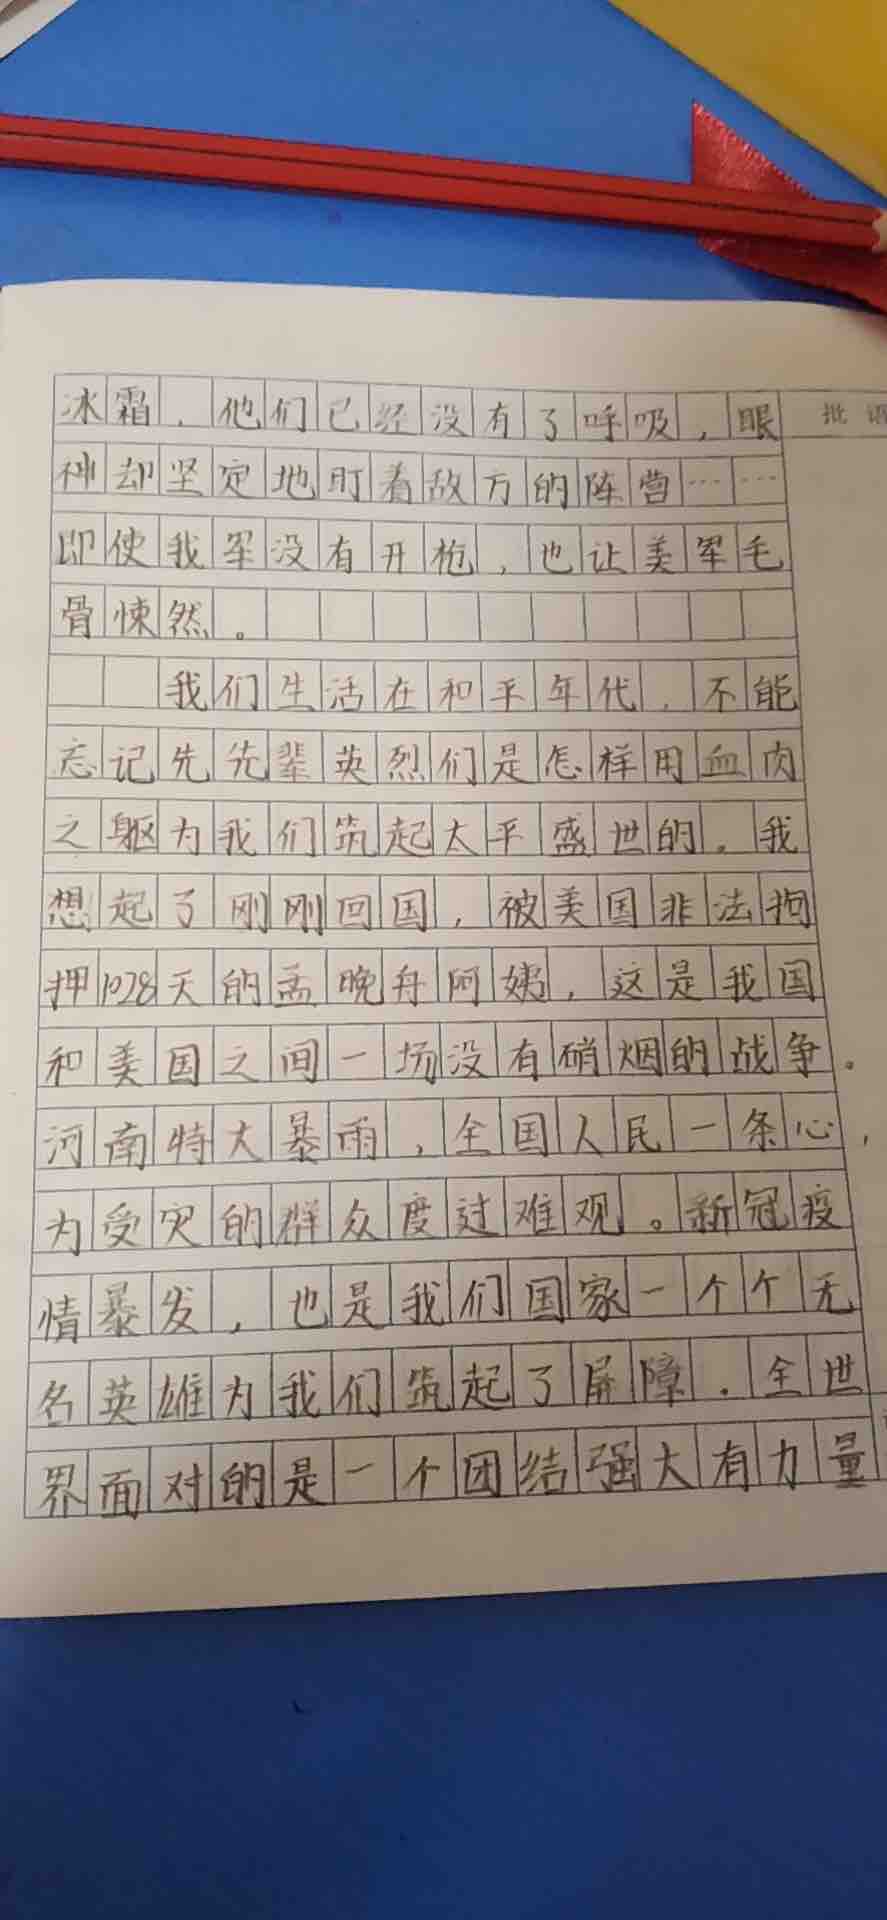 冰霜，他们已经没有了呼吸，眼
批语
神却坚定地盯着敌方的阵营……
即使我军没有开枪，也让美军毛
骨悚然。
我们生活在和平年代，不能
忘记先先辈英烈们是怎样用血肉
之躯为我们筑起太平盛世的。我
想起了刚刚回国，被美国非法拘
押1028天的孟晚舟阿姨，这是我国
和美国之间一场没有硝烟的战争。
河南特大暴雨，全国人民一条心，
为受灾的群众度过难观。新冠疫
情暴发，也是我们国家一个个无
名英雄为我们筑起了屏障．全世
界面对的是一个团结强大有力量